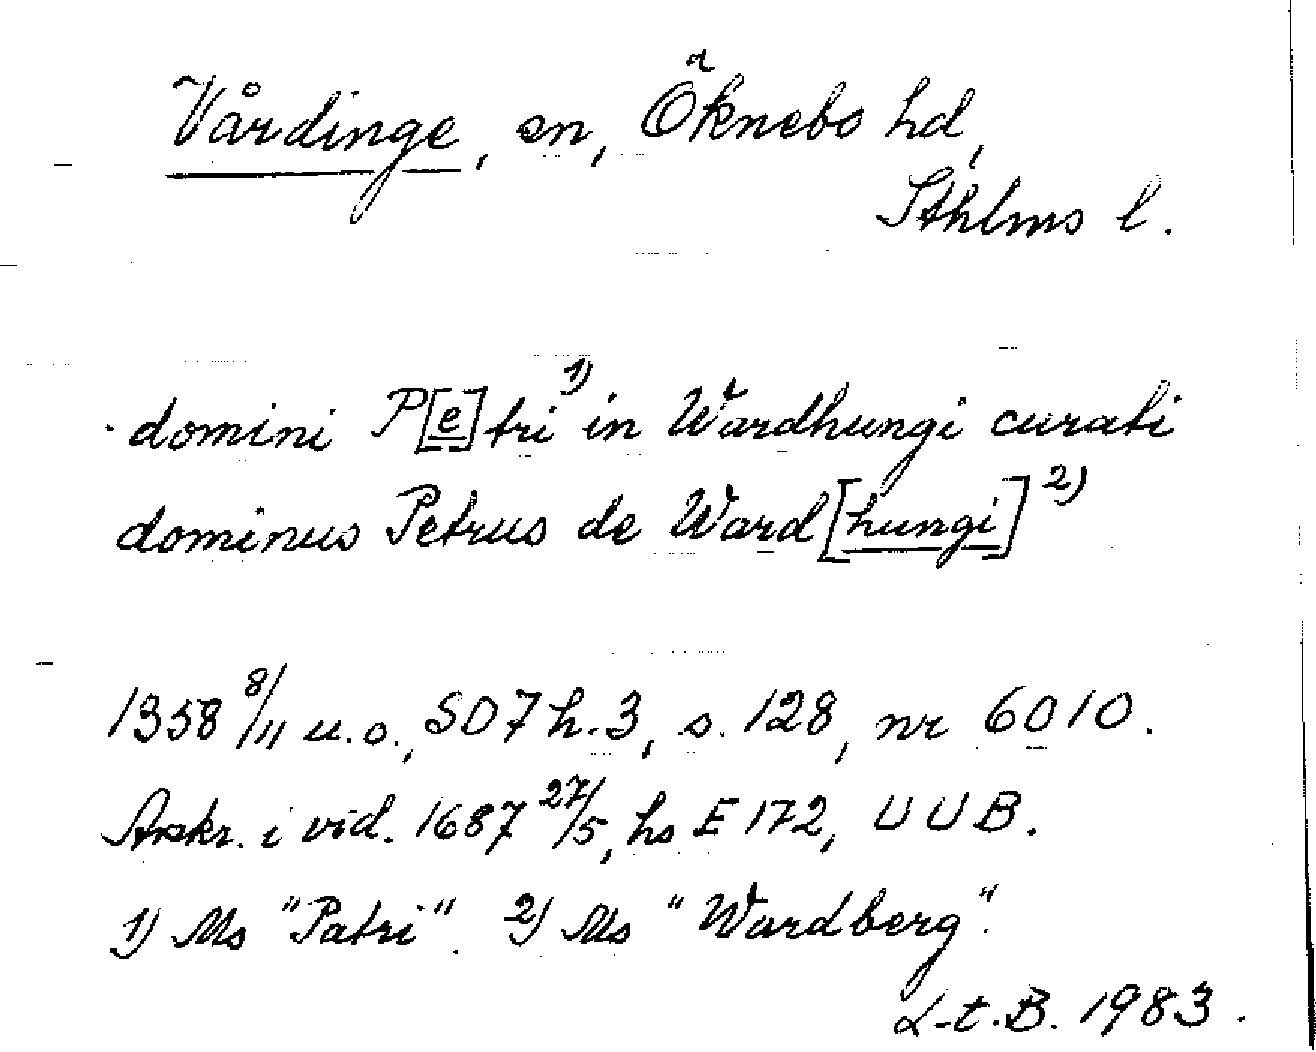 Vårdinge, sn, Öknebo hd,
Sthlms l.
domini P[e]tri 1) in Wardhungi curati
dominus Petrus de Ward[hungi] 2)
1358 8/11 u.o., SD 7 h. 3, s. 128, nr 6010.
Avskr. i vid. 1687 27/5, hs E 172, UUB.
1) Ms "Patri". 2) Ms "Wardberg".
L-t.B. 1983.